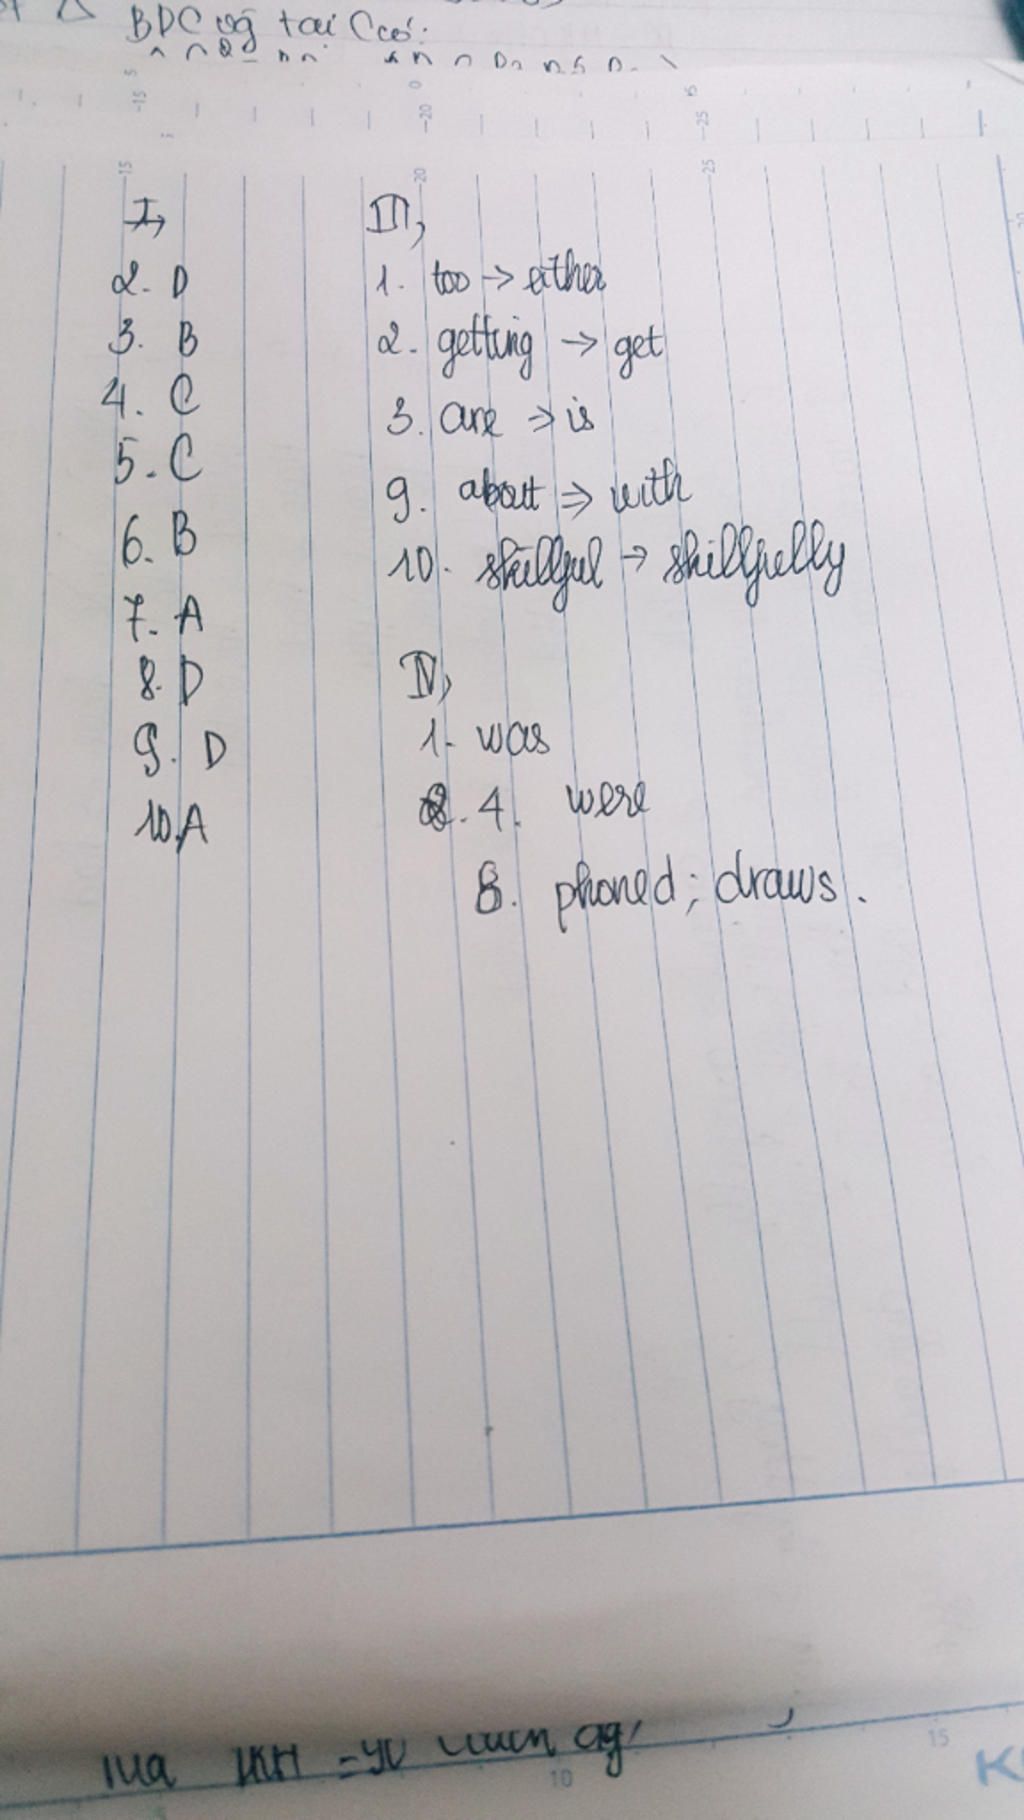 BDC vg tại C có:
-15
-20
-25
15
20
25
I,
2. D
3. B
4. C
5. C
6. B
7. A
8. D
9. D
10. A
III,
1. too → either
2. getting → get
3. are → is
9. about ⇒ with
10. skillful → skillfully
IV,
1. was
4. were
8. phoned; draws.
10
15